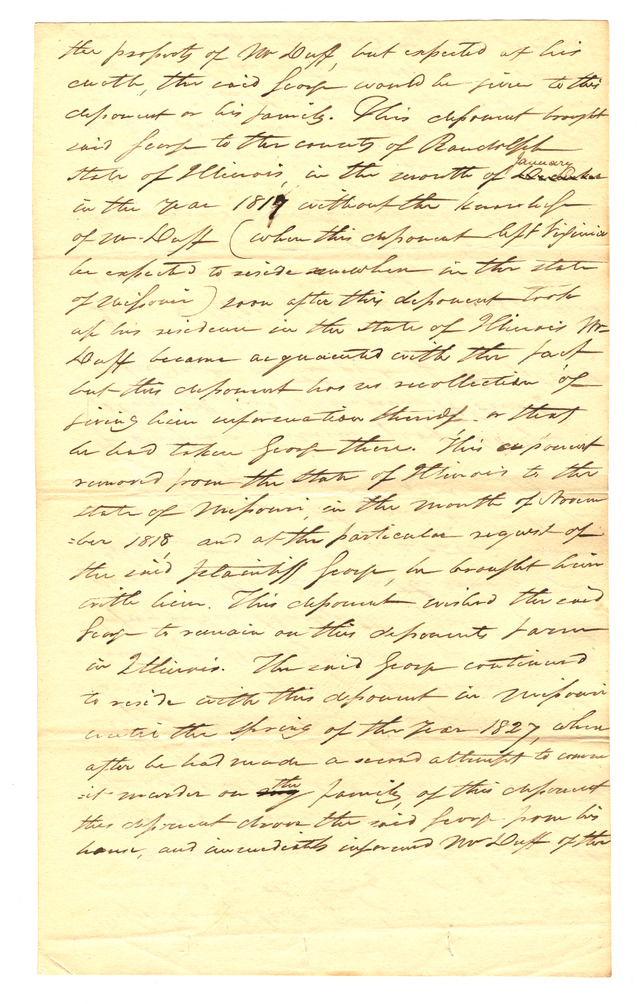 the property of Mr Duff, but expected at his
death, the said George would be given to this
deponent or his family. This deponent brought
said George to the county of Randolph
State of Illinois, in the month of January
in the year 1817 without the knowledge
of Mr Duff (when this deponent left Virginia
he expected to reside somewhere in the state
of Missouri) soon after this deponent took
up his residence in the state of Illinois Mr
Duff became acquainted with the fact
but this deponent has no recollection of
giving him information thereof or that
he had taken George there. This deponent
removed from the State of Illinois to the
state of Missouri, in the month of Novem
=ber 1818 and at the particular request of
the said plaintiff George, he brought him
with him. This deponent wished the said
George to remain on this deponents farm
in Illinois. The said George continued
to reside with this deponent in Missouri
until the spring of the year 1827, when
after he had made a second attempt to comm
=it murder on the family, of this deponent
this deponent drove the said George from his
house, and immediately informed Mr Duff of the